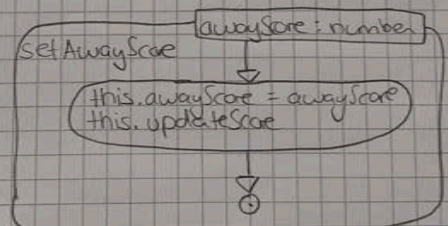 awayScore : number
setAwayScore
this.awayScore = awayScore
this.updateScore